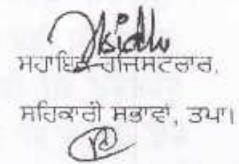 ਸਹਾਇਕ ਰਜਿਸਟਰਾਰ,
ਸਹਿਕਾਰੀ ਸਭਾਵਾਂ, ਤਪਾ।